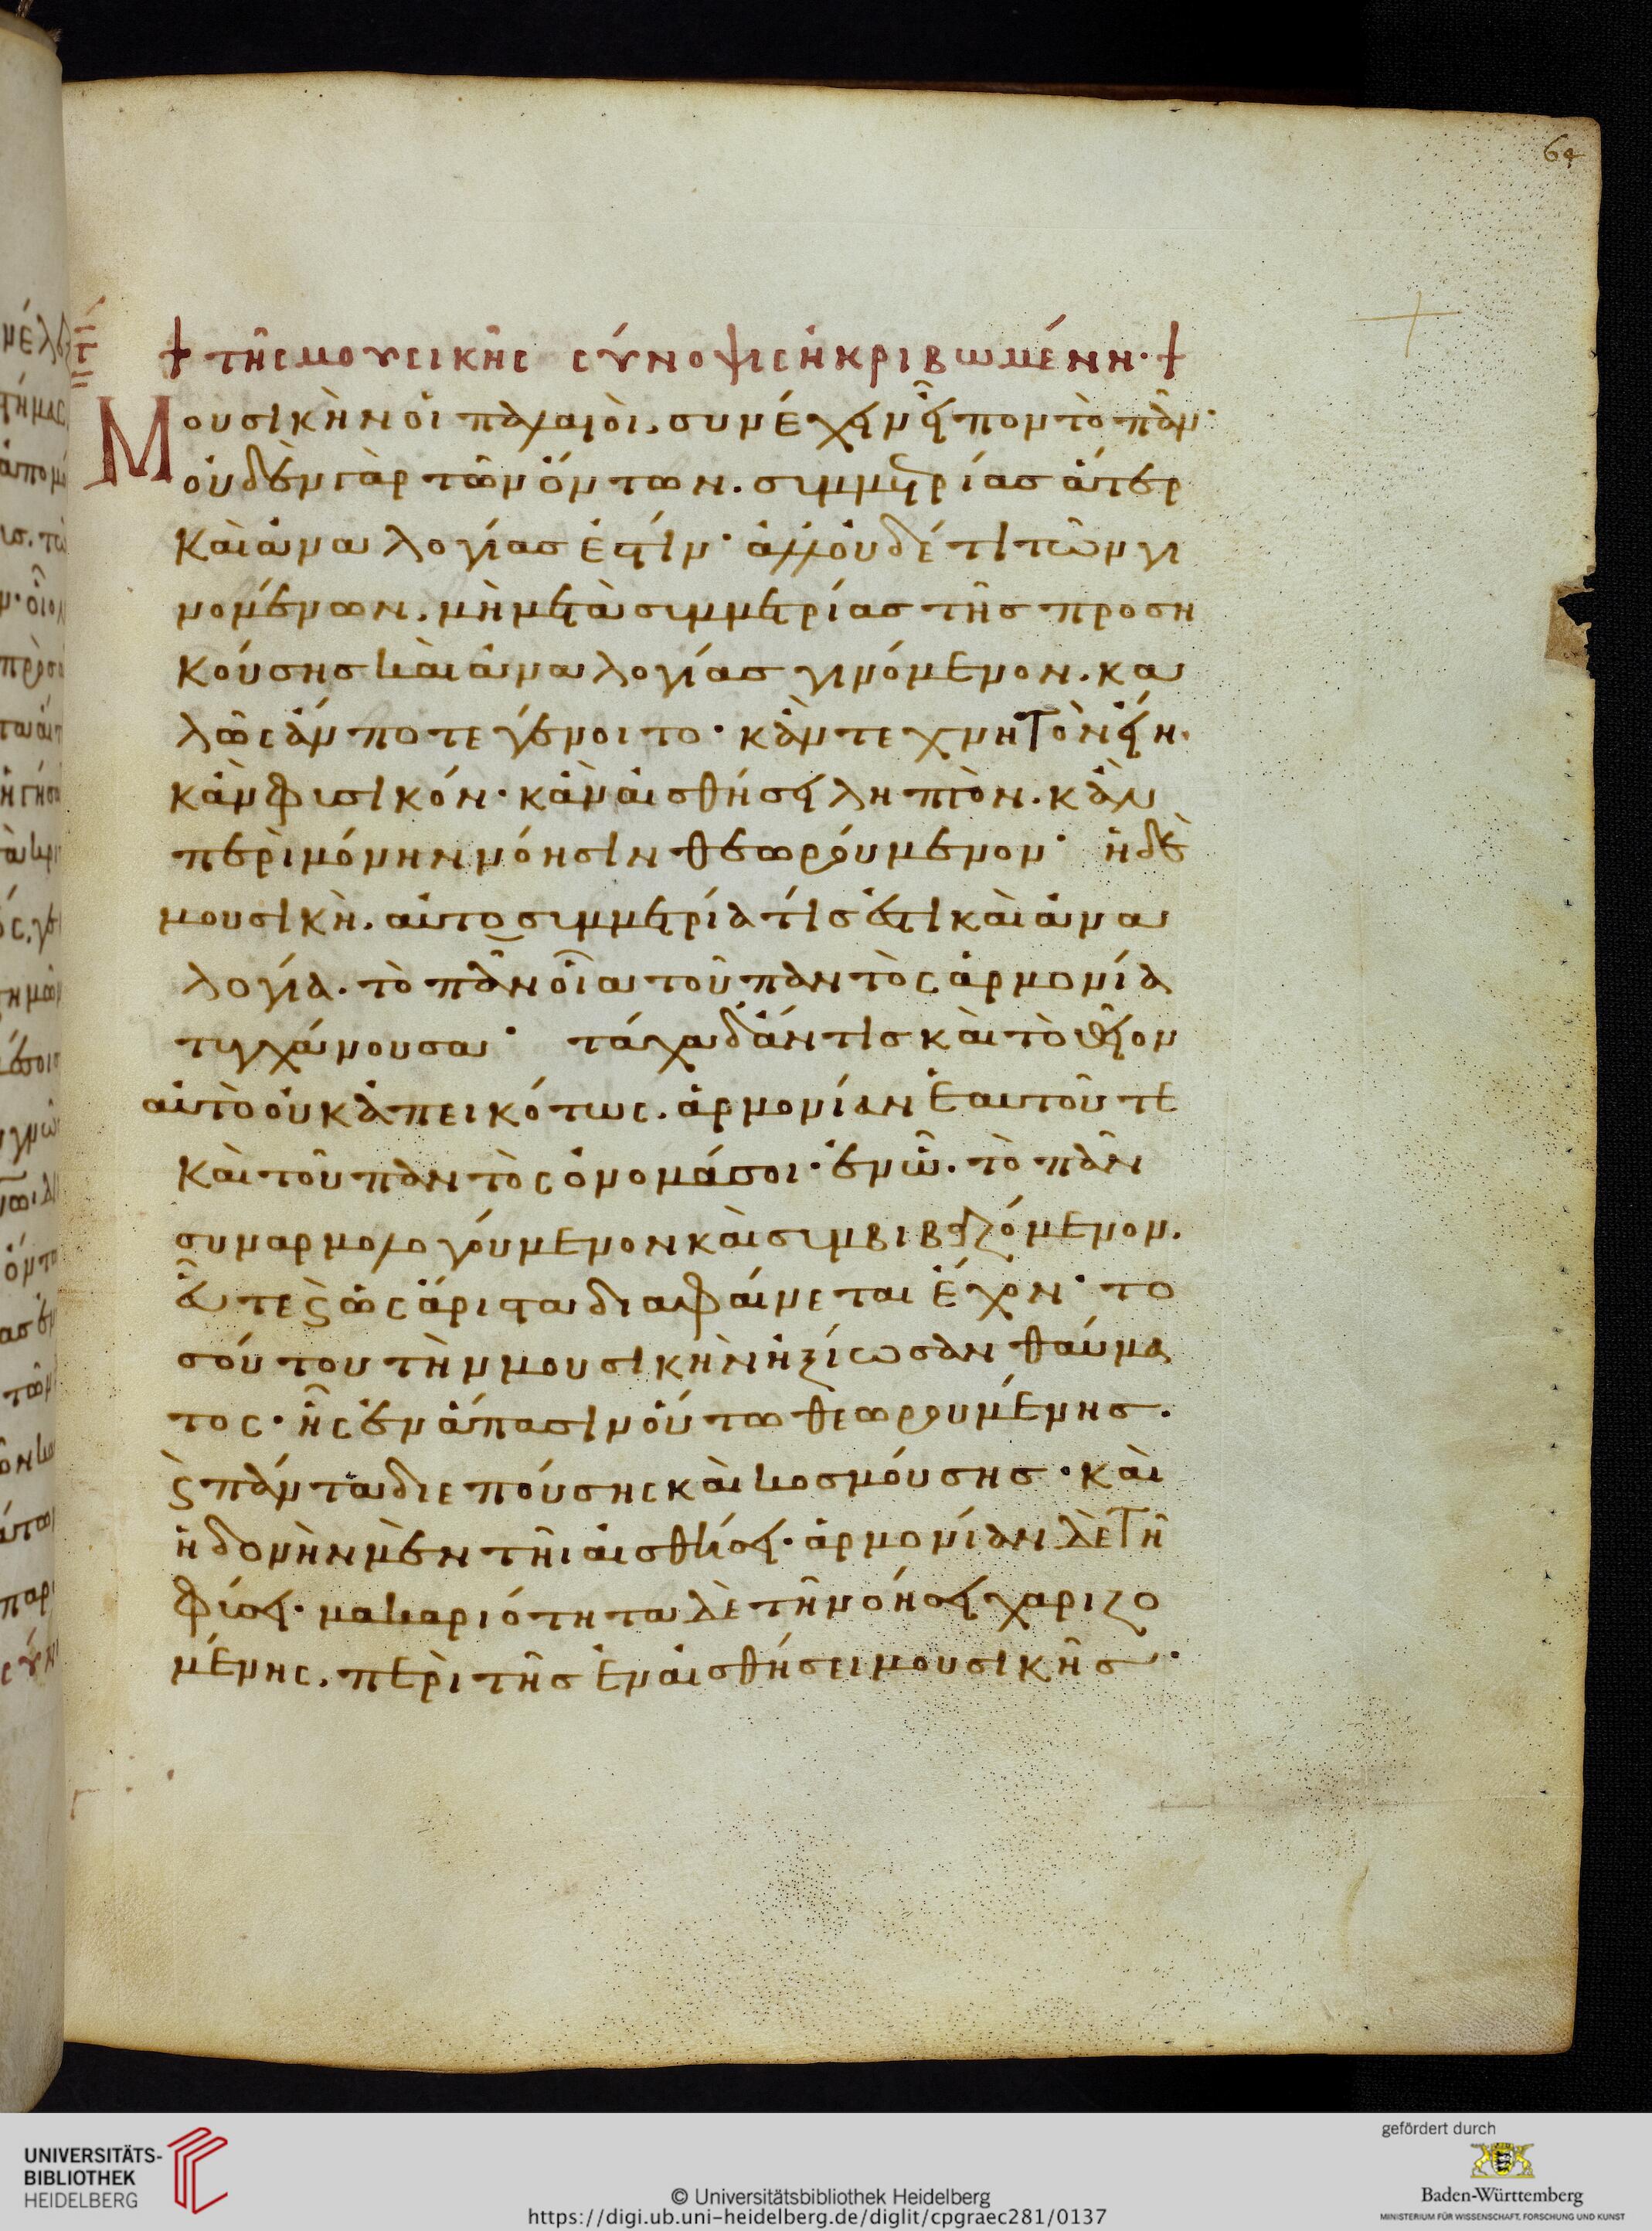 64
† τῆς μουσικῆς σύνοψις ἠκριβωμένη· †
Μουσικὴν οἱ παλαιοὶ, συνέχειν εἶπον τὸ πᾶν·
οὐδὲν γὰρ τῶν ὄντων, συμμετρίας ἄτερ
καὶ ἀναλογίας ἐστίν· ἀλλ οὐδέ τι τῶν γι
νομένων, μὴ μετὰ συμμετρίας τῆς προση
κούσης καὶ ἀναλογίας γινόμενον, κα
λῶς ἄν ποτε γένοιτο· κἂν τεχνητὸν εἴη,
κἂν φυσικόν· κἂν αἰσθήσει ληπτὸν, κἂν
περὶ μόνην νόησιν θεωρούμενον· ἡ δὲ
μουσικὴ, αὐτοσυμμετρία τίς ἐστι καὶ ἀνα
λογία, τὸ πᾶν οἷα τοῦ παντὸς ἁρμονία
τυγχάνουσα· τάχα δ' ἄν τις καὶ τὸ θεῖον
αὐτὸ οὐκ ἀπεικότως, ἁρμονίαν ἑαυτοῦ τε
καὶ τοῦ παντὸς ὀνομάσοι· ἐν ᾧ, τὸ πᾶν
συναρμολογούμενον καὶ συμβιβαζόμενον,
εὖ τε καὶ ὡς ἄριστα διαφαίνεται ἔχον· το
σούτου τὴν μουσικὴν ἠξίωσαν θαύμα
τος· ἧς ἐν ἅπασιν οὕτω θεωρουμένης,
καὶ πάντα διεπούσης καὶ κοσμούσης· καὶ
ἡδονὴν μὲν τῆι αἰσθήσει· ἁρμονίαν δὲ τῆ
φύσει· μακαριότητα δὲ τῆ νοήσει χαριζο
μένης, περὶ τῆς ἐν αἰσθήσει μουσικῆς·
UNIVERSITÄTS-
BIBLIOTHEK
HEIDELBERG
© Universitätsbibliothek Heidelberg
https://digi.ub.uni-heidelberg.de/diglit/cpgraec281/0137
gefördert durch
Baden-Württemberg
MINISTERIUM FÜR WISSENSCHAFT, FORSCHUNG UND KUNST